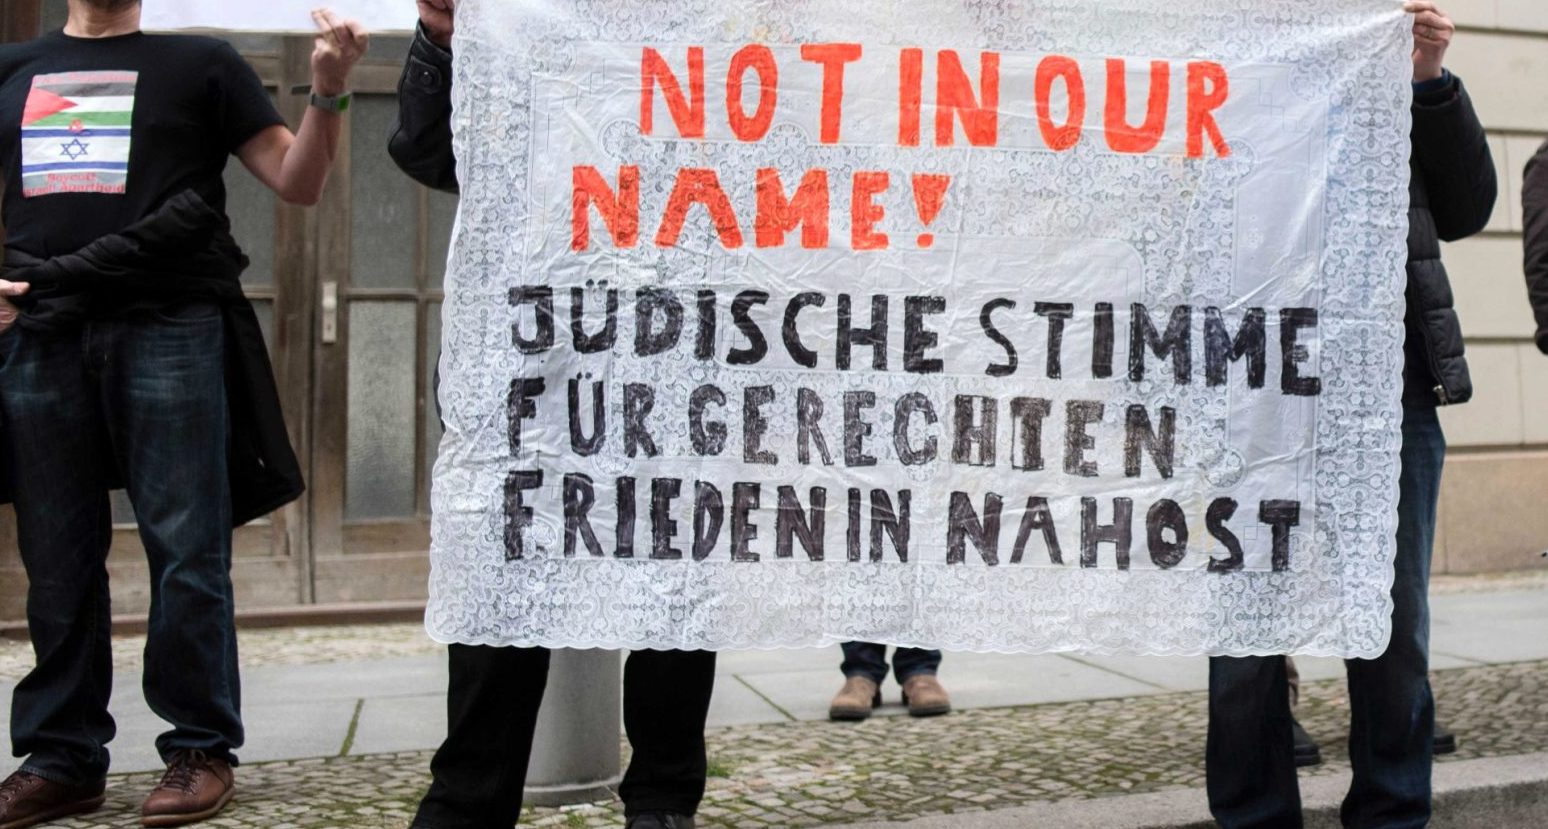 NOT IN OUR
NAME!
JÜDISCHE STIMME
FÜR GERECHTEN
FRIEDEN IN NAHOST
Boycott
Israeli Apartheid